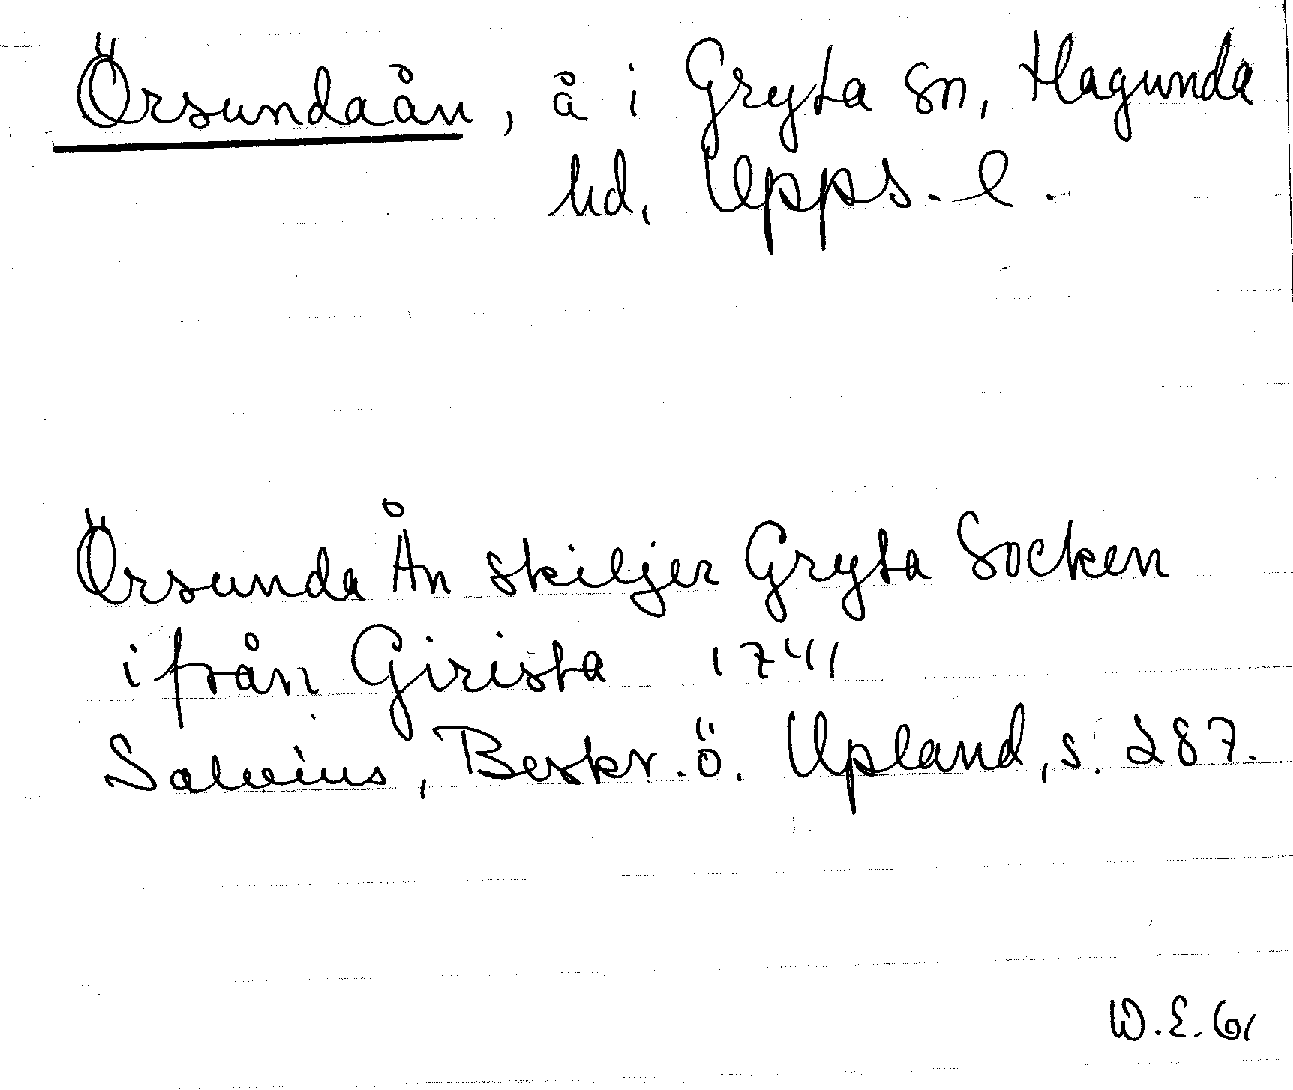 Örsundaån, å i Gryta sn, Hagunda
hd, Upps. l.
Örsunda Ån skiljer Gryta Socken
ifrån Girista 1741
Salvius, Beskr. ö. Upland, s. 287.
W.E.G.